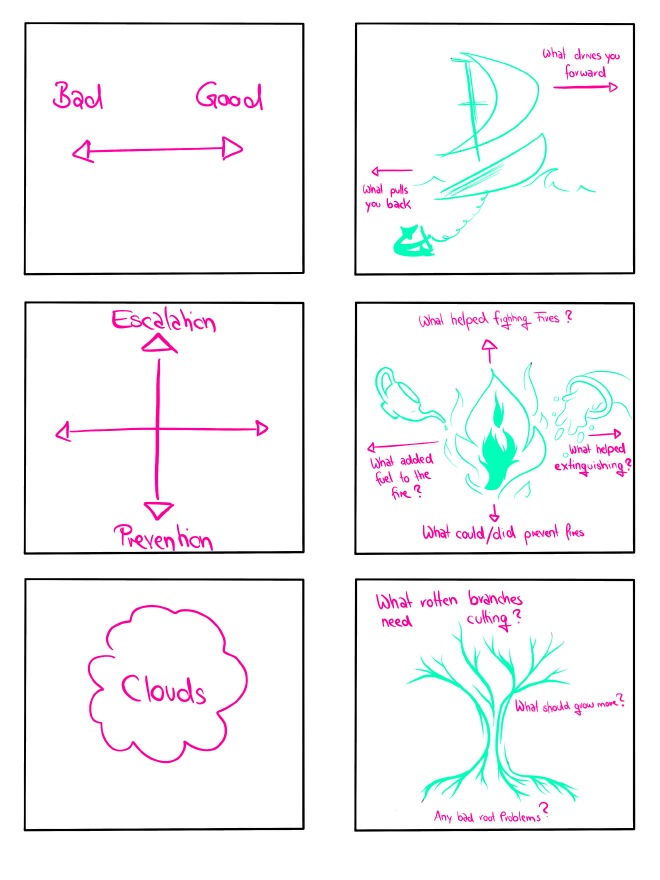 Bad
Good
What drives you
forward
What pulls
you back
Escalation
Prevention
What helped fighting Fires?
What added
fuel to the
fire?
What helped
extinguishing?
What could/did prevent fires
Clouds
What rotten branches
need cutting?
What should grow more?
Any bad root Problems?